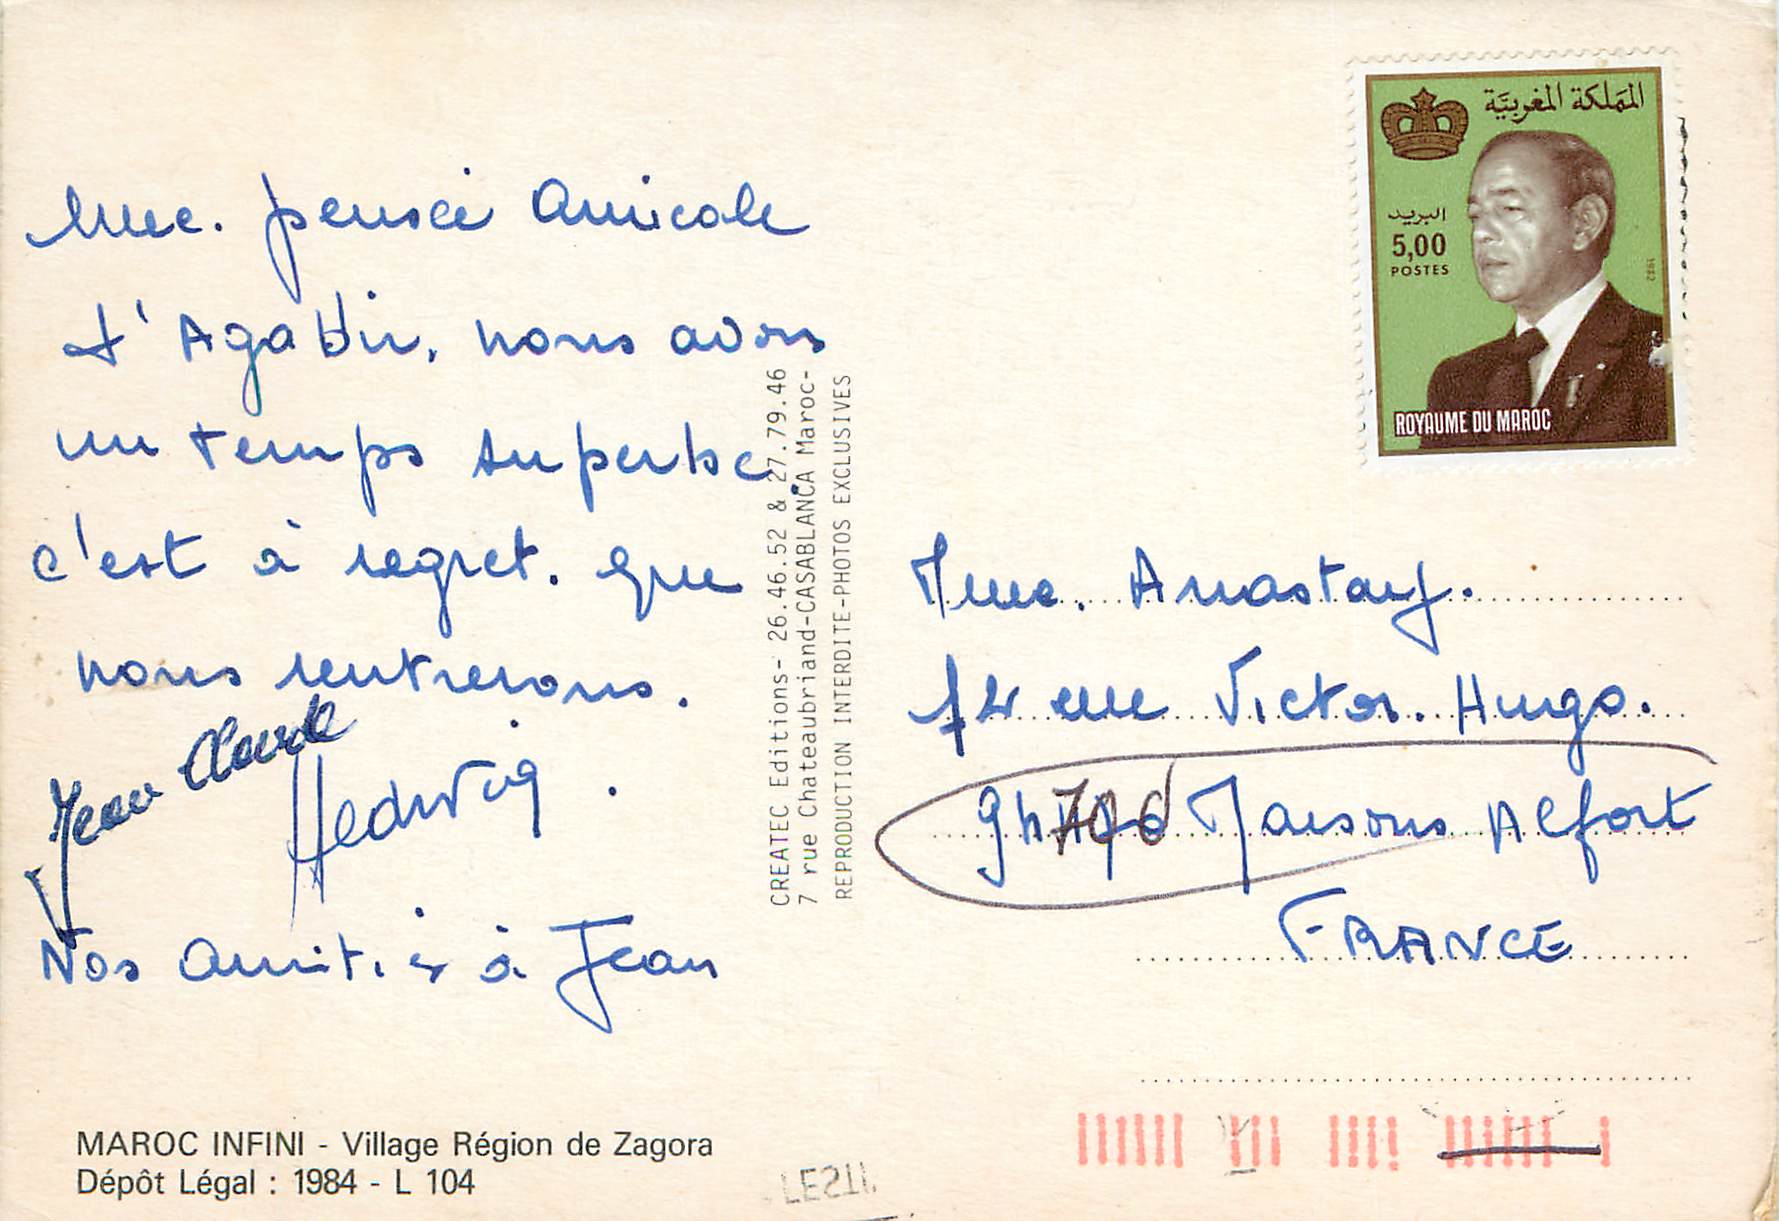 Une pensée amicale
d'Agadir, nous avons
un temps superbe,
c'est à regret. que
nous rentrerons.
Jean Claude
Hedwig.
Nos amitiés à Jean
MAROC INFINI - Village Région de Zagora
Dépôt Légal : 1984 - L 104
CREATEC Editions- 26.46.52 & 27.79.46
7 rue Chateaubriand-CASABLANCA Maroc-
REPRODUCTION INTERDITE-PHOTOS EXCLUSIVES
المملكة المغربية
البريد
5,00
POSTES
1982
ROYAUME DU MAROC
Mme. Anastay.
rue Victor. Hugo.
94700 Maisons Alfort
FRANCE